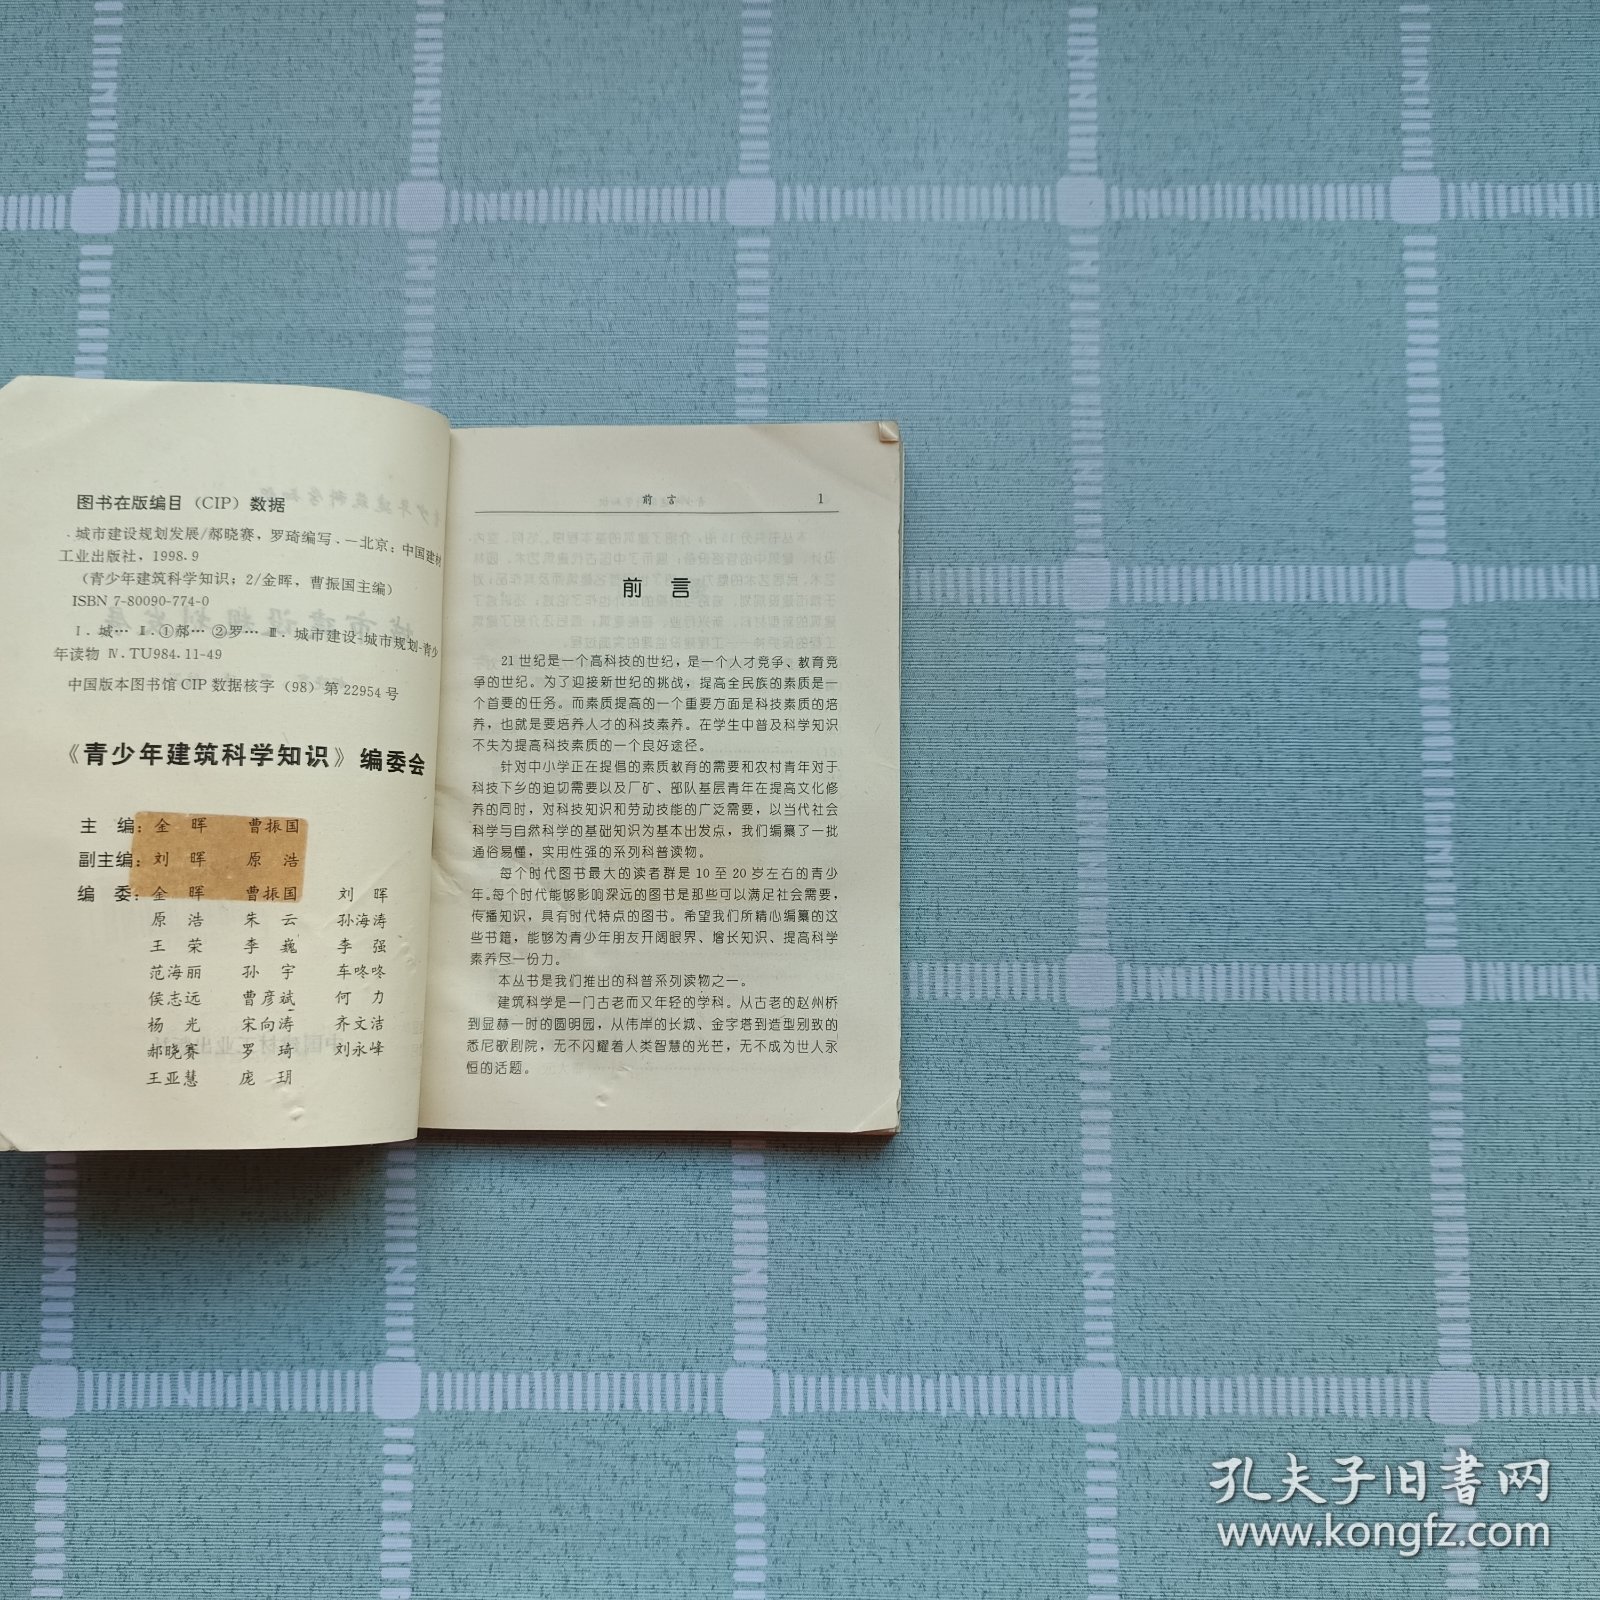 图书在版编目（CIP）数据
城市建设规划发展/郝晓赛，罗琦编写．－北京：中国建材
工业出版社，1998.9
（青少年建筑科学知识；2/金晖，曹振国主编）
ISBN 7-80090-774-0
Ⅰ．城… Ⅱ．①郝… ②罗… Ⅲ．城市建设-城市规划-青少
年读物 Ⅳ．TU984.11-49
中国版本图书馆CIP数据核字（98）第22954号
《青少年建筑科学知识》编委会
主　编：金　晖　曹振国
副主编：刘　晖　原　浩
编　委：金　晖　曹振国　刘　晖
原　浩　朱　云　孙海涛
王　荣　李　巍　李　强
范海丽　孙　宇　车咚咚
侯志远　曹彦斌　何　力
杨　光　宋向涛　齐文洁
郝晓赛　罗　琦　刘永峰
王亚慧　庞　玥
前　言　1
前　言
21世纪是一个高科技的世纪，是一个人才竞争、教育竞
争的世纪。为了迎接新世纪的挑战，提高全民族的素质是一
个首要的任务。而素质提高的一个重要方面是科技素质的培
养，也就是要培养人才的科技素养。在学生中普及科学知识
不失为提高科技素质的一个良好途径。
针对中小学正在提倡的素质教育的需要和农村青年对于
科技下乡的迫切需要以及厂矿、部队基层青年在提高文化修
养的同时，对科技知识和劳动技能的广泛需要，以当代社会
科学与自然科学的基础知识为基本出发点，我们编纂了一批
通俗易懂，实用性强的系列科普读物。
每个时代图书最大的读者群是10至20岁左右的青少
年。每个时代能够影响深远的图书是那些可以满足社会需要，
传播知识，具有时代特点的图书。希望我们所精心编纂的这
些书籍，能够为青少年朋友开阔眼界、增长知识、提高科学
素养尽一份力。
本丛书是我们推出的科普系列读物之一。
建筑科学是一门古老而又年轻的学科。从古老的赵州桥
到显赫一时的圆明园，从伟岸的长城、金字塔到造型别致的
悉尼歌剧院，无不闪耀着人类智慧的光芒，无不成为世人永
恒的话题。
孔夫子旧书网
www.kongfz.com